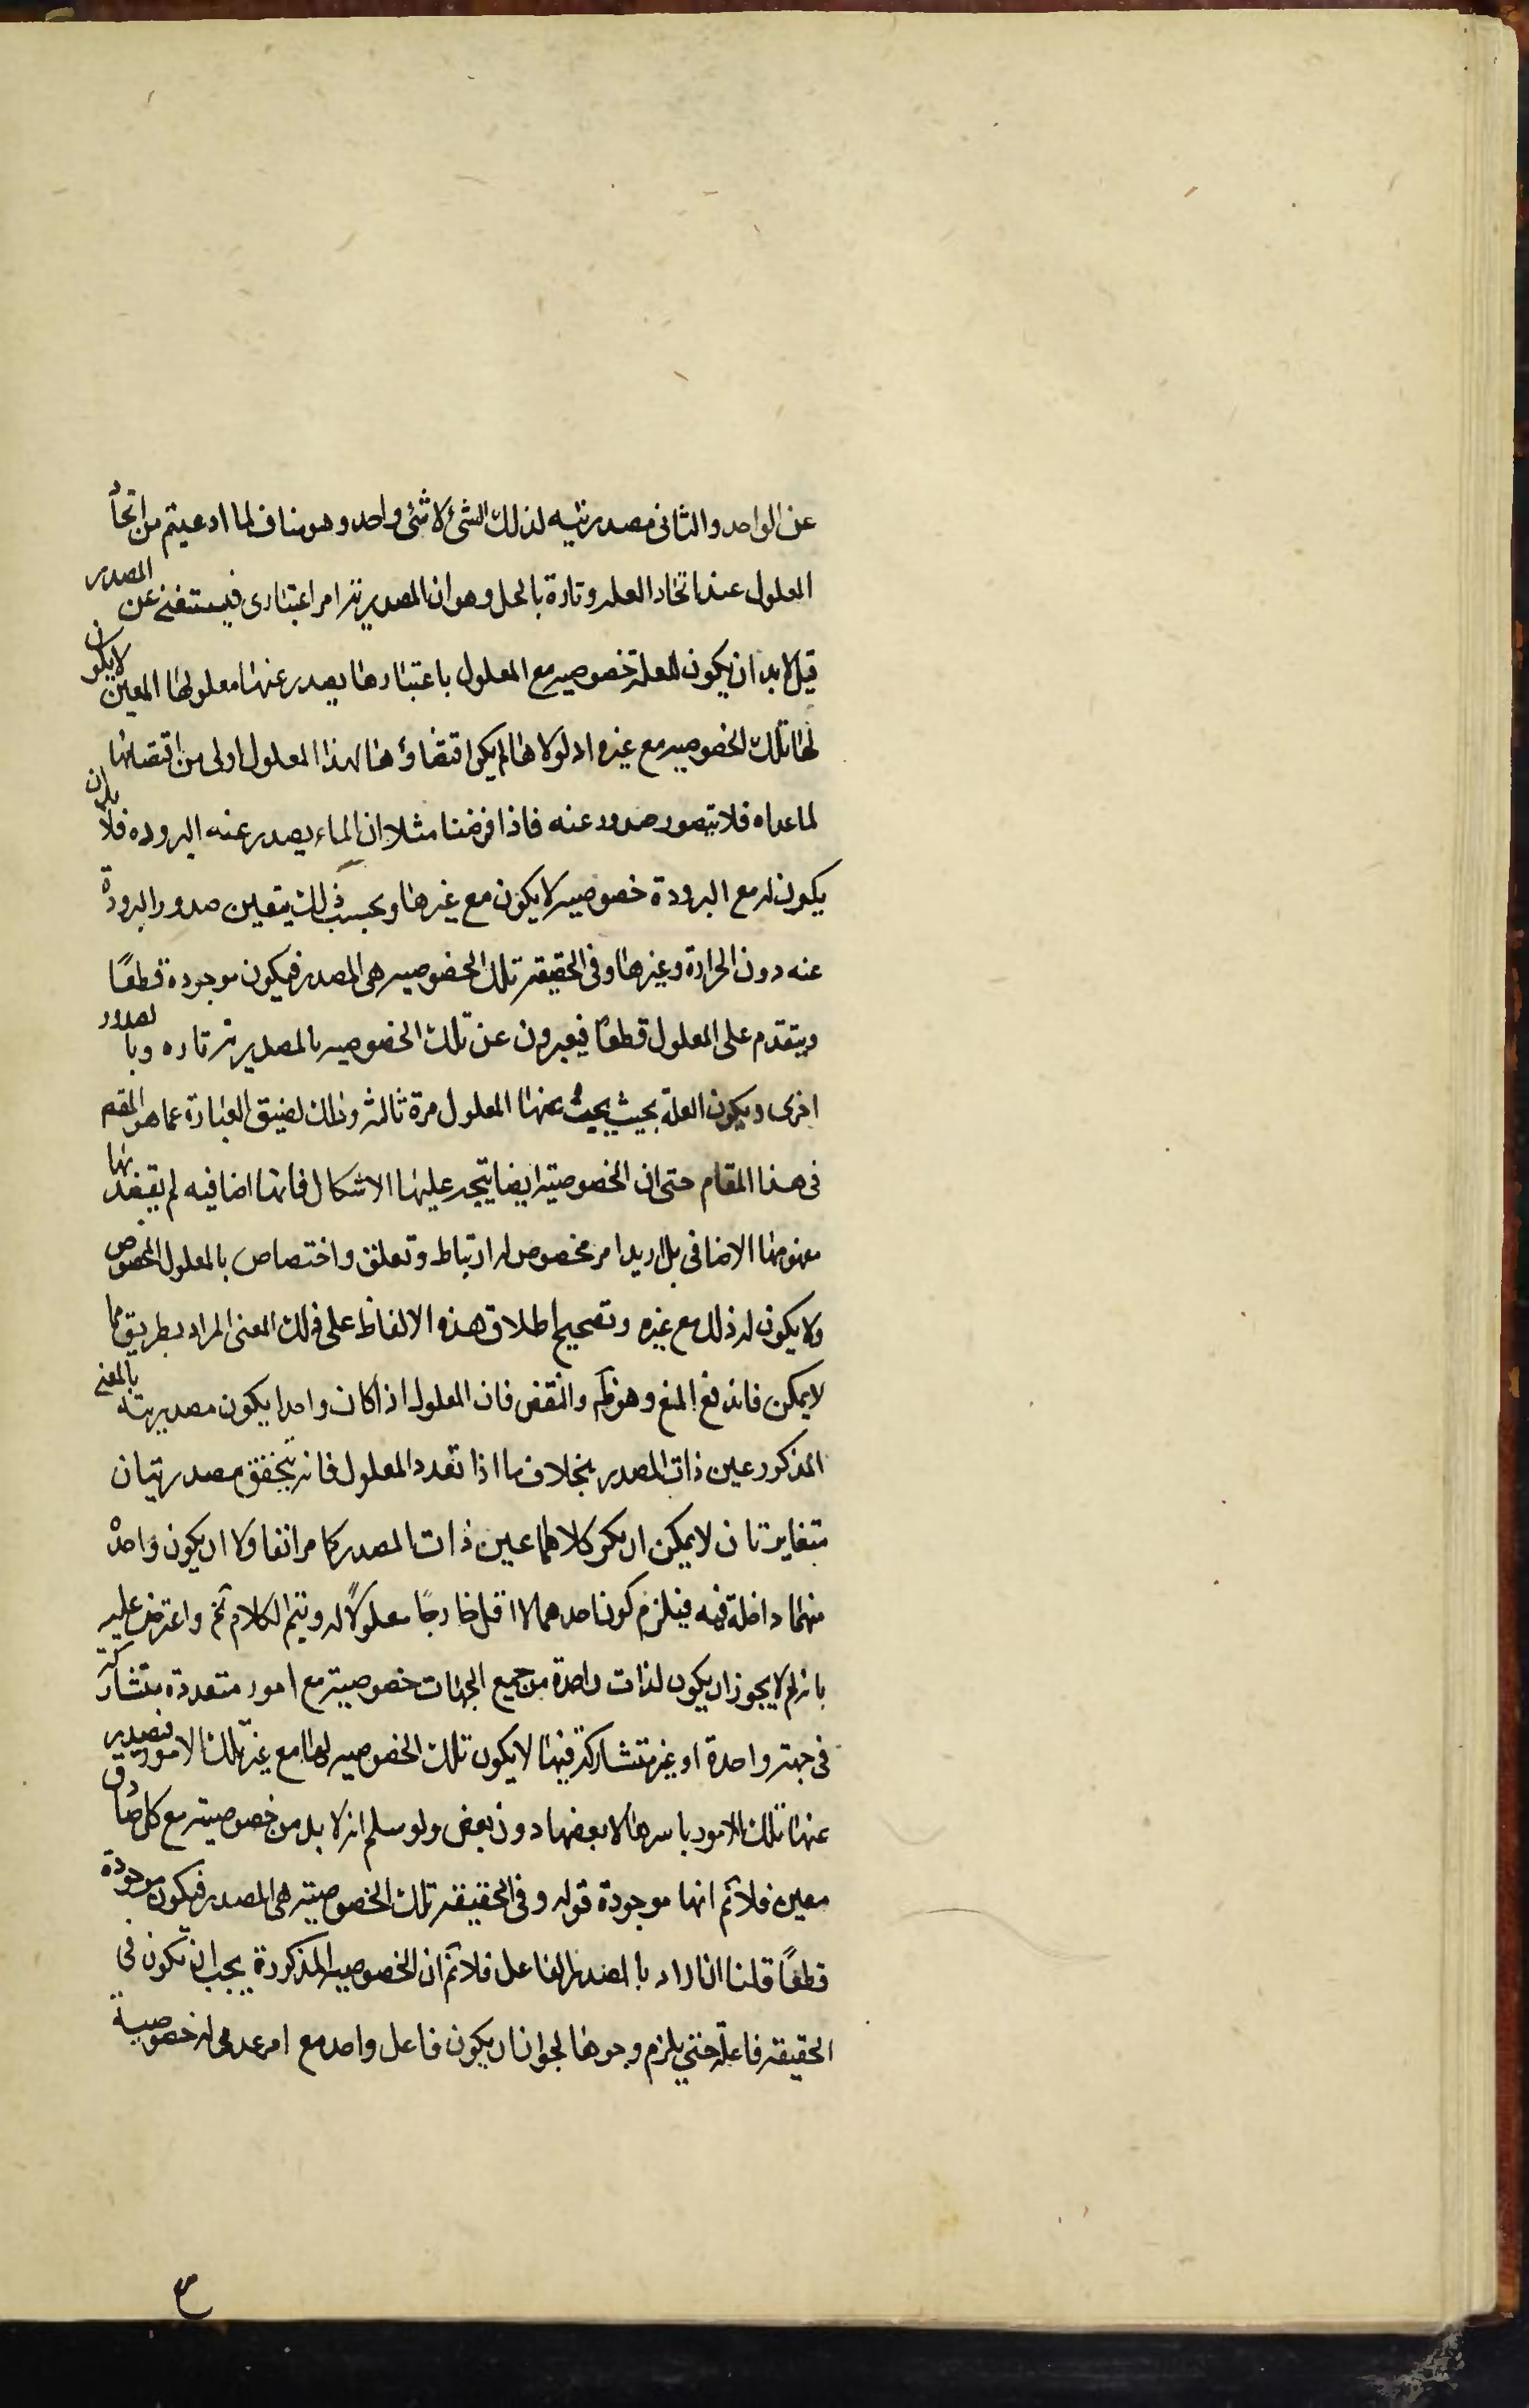 عن الواحد والثانى مصدريته لذلك الشئ لا شئ واحد وهو مناف لما ادعيتم من اتحاد
المعلول عند اتحاد العله وتارة بالحل وهو ان المصدرية امر اعتبارى فيستغنى عن المصدر
قيل لا بد ان يكون للعلة خصوصيه مع المعلول باعتبارها يصدر عنها معلولها المعين لا يكون
لها تلك الخصوصيه مع غيره اذ لولاها لم يكن اقتضاؤها لهذا المعلول اولى من اقتضائها
لما عداه فلا يتصور صدوره عنه فاذا فرضنا مثلا ان الماء يصدر عنه البروده فلا بد ان
يكون له مع البرودة خصوصيه لا يكون مع غيرها وبحسب ذلك يتعين صدور البرودة
عنه دون الحرارة وغيرها وفى الحقيقة تلك الخصوصيه هى المصدر فيكون موجودة قطعًا
ويتقدم على المعلول قطعًا فيعبرون عن تلك الخصوصيه بالمصدرية تاره وبالصدور
اخرى ويكون العلة بحيث يجب عنها المعلول مرة ثالثة وذلك لضيق العبارة عما هو المقصـ
فى هذا المقام حتى ان الخصوصية ايضا يتجه عليها الاشكال فانها اضافيه لم يقصد بها
مفهومها الاضافى بل اريد امر مخصوص له ارتباط وتعلق واختصاص بالمعلول المخصوص
ولا يكون له ذلك مع غيره وتصحيح اطلاق هذه الالفاظ على ذلك المعنى المراد بطريق مما
لا يمكن فاندفع المنع وهو ظه والنقض فان المعلول اذا كان واحدا يكون مصدريته بالمعنى
المذكور عين ذات المصدر بخلاف ما اذا تعدد المعلول فانه يتحقق مصدريتان
متغايرتان لا يمكن ان يكون كلاهما عين ذات المصدر كما مر انفا ولا ان يكون واحدة
منهما داخلة فيه فيلزم كون احدهما لا اقل خارجًا معلولاً له ويتم الكلام ثم واعترض عليه
بانه لم لا يجوز ان يكون لذات واحدة من جميع الجهات خصوصية مع امور متعددة متشاركة
فى جهة واحدة او غير متشاركة فيها لا يكون تلك الخصوصيه لها مع غير تلك الامور فيصدر
عنها تلك الامور باسرها لا بعضها دون بعض ولو سلم انه لا بد من خصوصية مع كل صادر
معين فلا نم انها موجودة قوله وفى الحقيقة تلك الخصوصية هى المصدر فيكون موجودة
قطعًا قلنا ان اراد بالمصدر الفاعل فلا نم ان الخصوصيه المذكورة يجب ان تكون فى
الحقيقة فاعلة حتى يلزم وجودها لجواز ان يكون فاعل واحد مع امر عدمى له خصوصية